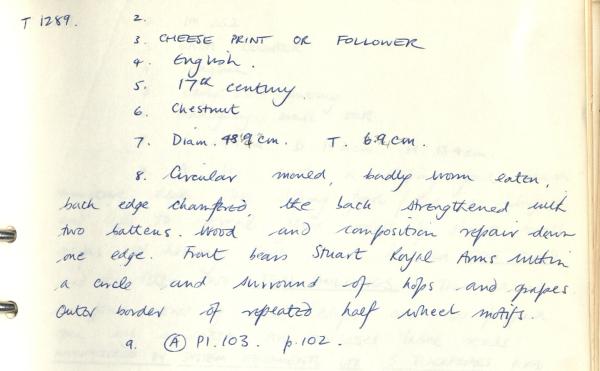 T 1289. 2.
3. CHEESE PRINT OR FOLLOWER
4. English.
5. 17th century
6. Chestnut
7. Diam. cm. T. 6.9 cm.
8. Circular mould, badly worm eaten,
back edge chamfered, the back strengthened with
two battens. Wood and composition repair down
one edge. Front bears Stuart Royal Arms within
a circle and surround of hops and grapes
Outer border of repeated half wheel motifs.
9. (A) Pl. 103. p. 102.